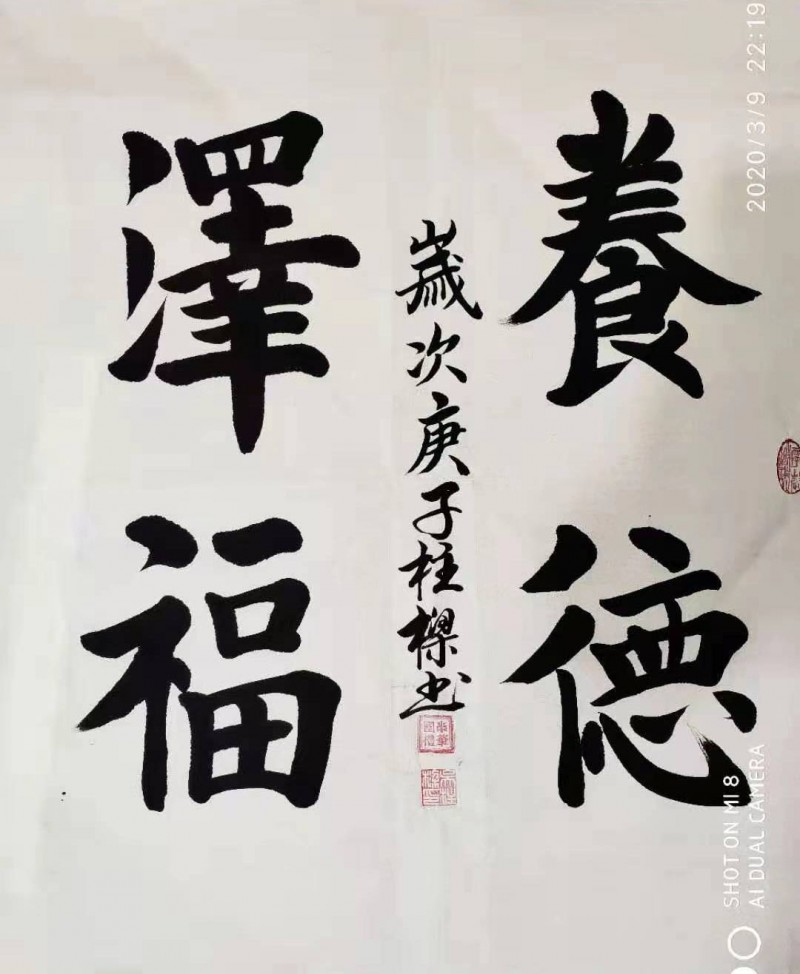 養德
歲次庚子柱樑书
澤福
2020/3/9 22:19
SHOT ON MI 8
AI DUAL CAMERA